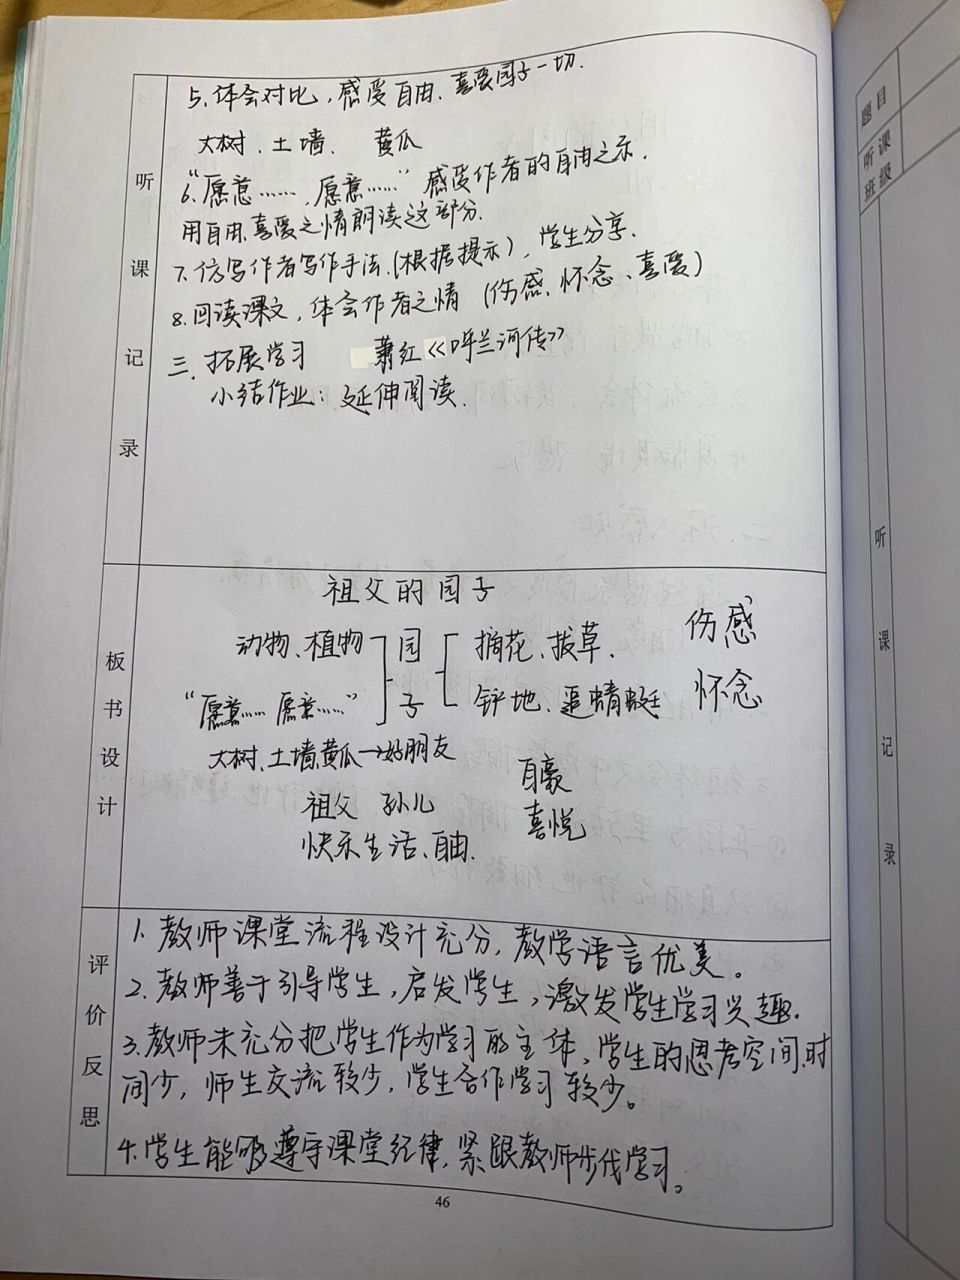 听课记录
5. 体会对比，感受自由、喜爱园子一切.
大树、土墙、 黄瓜
6. “愿意……，愿意……” 感受作者的自由之示.
用自由、喜爱之情朗读这部分.
7. 仿写作者写作手法.(根据提示), 学生分享.
8. 回读课文, 体会作者之情 (伤感、怀念、喜爱)
三. 拓展学习 萧红《呼兰河传》
小结作业: 延伸阅读.
板书设计
祖父的园子
动物、植物 园 摘花、拔草、 伤感
“愿意…… 愿意……” 子 铲地、追蜻蜓 怀念
大树、土墙、黄瓜→好朋友
自豪
祖父 孙儿
喜悦
快乐生活、自由.
评价反思
1. 教师课堂流程设计充分, 教学语言优美。
2. 教师善于引导学生, 启发学生, 激发学生学习兴趣.
3. 教师未充分把学生作为学习的主体, 学生的思考空间、时
间少, 师生交流较少, 学生合作学习较少。
4. 学生能够遵守课堂纪律, 紧跟教师步伐学习。
46
题目
听课班级
听课记录